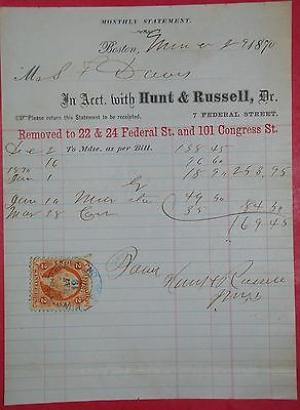 MONTHLY STATEMENT.
Boston, 29 1870
Mr S F Davis
In Acct. with Hunt & Russell, Dr.
Please return this Statement to be receipted. 7 FEDERAL STREET.
Removed to 22 & 24 Federal St. and 101 Congress St.
Dec 2 To Mdse. as per Bill. 138 45
16 96 60
1870
Jan 1 18 90 253.95
Cr
Jan 10 49 50
Mar 28 35 84 50
169.45
Hunt & Russell